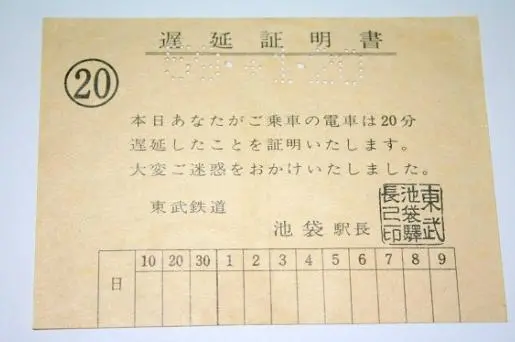 遅延証明書
⑳
本日あなたがご乗車の電車は20分
遅延したことを証明いたします。
大変ご迷惑をおかけいたしました。
東武鉄道
池袋駅長
東武
池袋驛
長之印
日 10 20 30 1 2 3 4 5 6 7 8 9